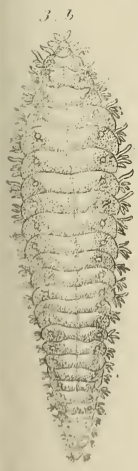 3. b